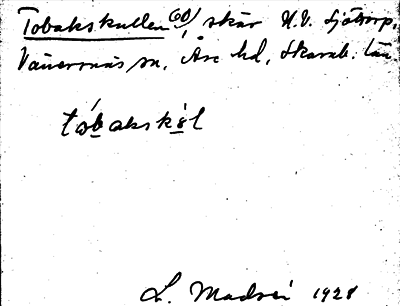 Tobakskullen (GB), skär N.V. Sjötorp,
Vänersnäs sn, Åse hd, Skarab. län.
tóbakskòl
L. Modéer 1928